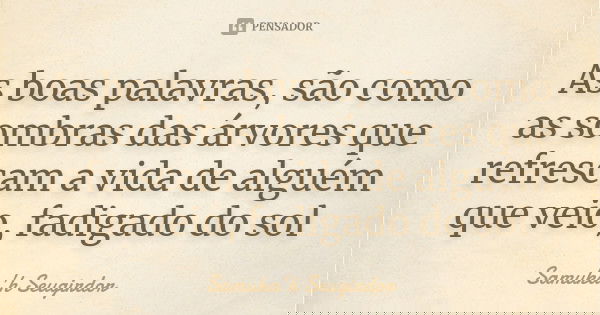 PENSADOR
As boas palavras, são como
as sombras das árvores que
refrescam a vida de alguém
que veio, fadigado do sol
Seugirdor